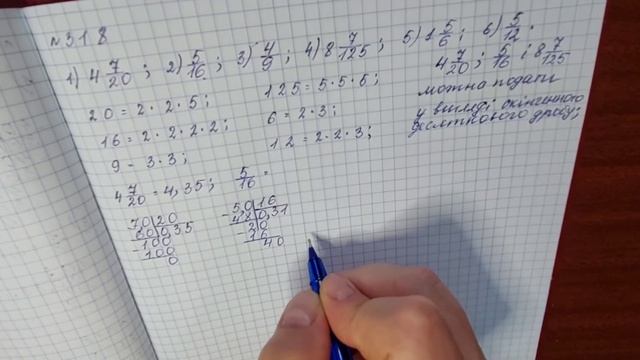 №318
1) 4 7/20 ; 2) 5/16 ; 3) 4/9 ; 4) 8 7/125 ; 5) 1 5/6 ; 6) 5/12 .
20 = 2 · 2 · 5 ;
16 = 2 · 2 · 2 · 2 ;
9 - 3 · 3 ;
125 = 5 · 5 · 5 ;
6 = 2 · 3 ;
12 = 2 · 2 · 3 ;
4 7/20 ; 5/16 і 8 7/125
можна подати
у вигляді скінченного
десяткового дробу ;
4 7/20 = 4,35 ; 5/16 =
70 20
60 0,35
- 100
100
0
- 50 16
48 0,31
20
16
40